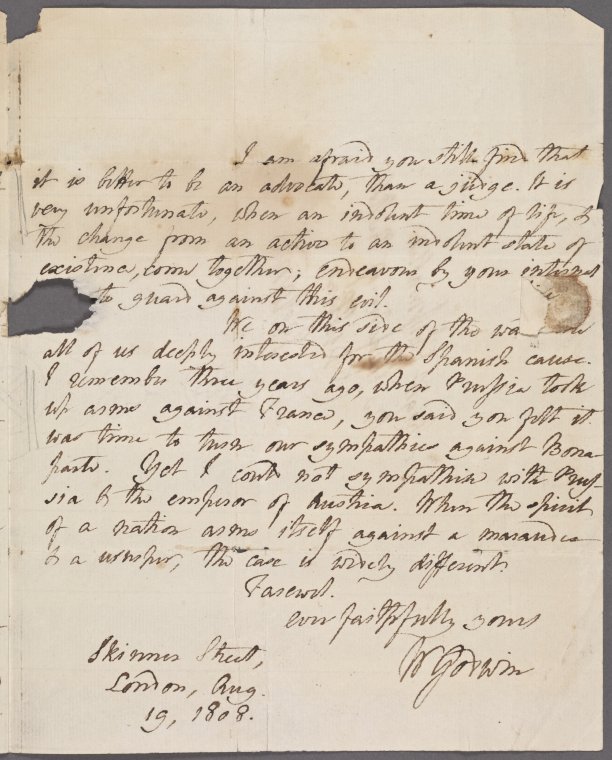 I am afraid you still find that
it is better to be an advocate, than a judge. It is
very unfortunate, when an indolent time of life, &
the change from an active to an indolent state of
existence, come together; endeavour by your internal
to guard against this evil.
We on this side of the are
all of us deeply interested for the Spanish cause.
I remember three years ago, when Prussia took
up arms against France, you said you felt it
was time to turn our sympathies against Bona
parte. Yet I could not sympathise with Prus
sia & the emperor of Austria. When the spirit
of a nation arms itself against a marauder
& a usurper, the case is widely different.
Farewel.
ever faithfully yours
W Godwin
Skinner Street,
London, Aug.
19, 1808.